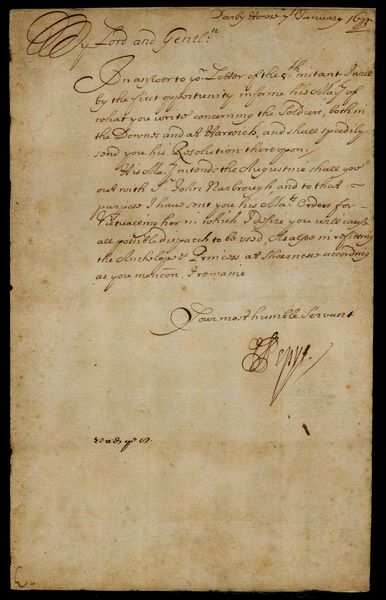 Darby House 7th January 167
My Lord and Gentl:n
In answer to yor. Letter of the 5th instant I will
by the first opportunity informe his Maty of
what you write concerning the Soldiers, both in
the Downes and at Harwich, and shall speedily
send you his Resolution thereupon.
His Maty intends the Augustine shall goe
out with Sr. John Narbrough, and to that
purpose I have sent you his Mats Orders for
Victualling her in which I desire you will cause
all possible dispatch to be used, As alsoe in refitting
the Anthelope & Princess at Sheernesse according
as you mencon, I remaine
Your most humble Servant
SPepys.